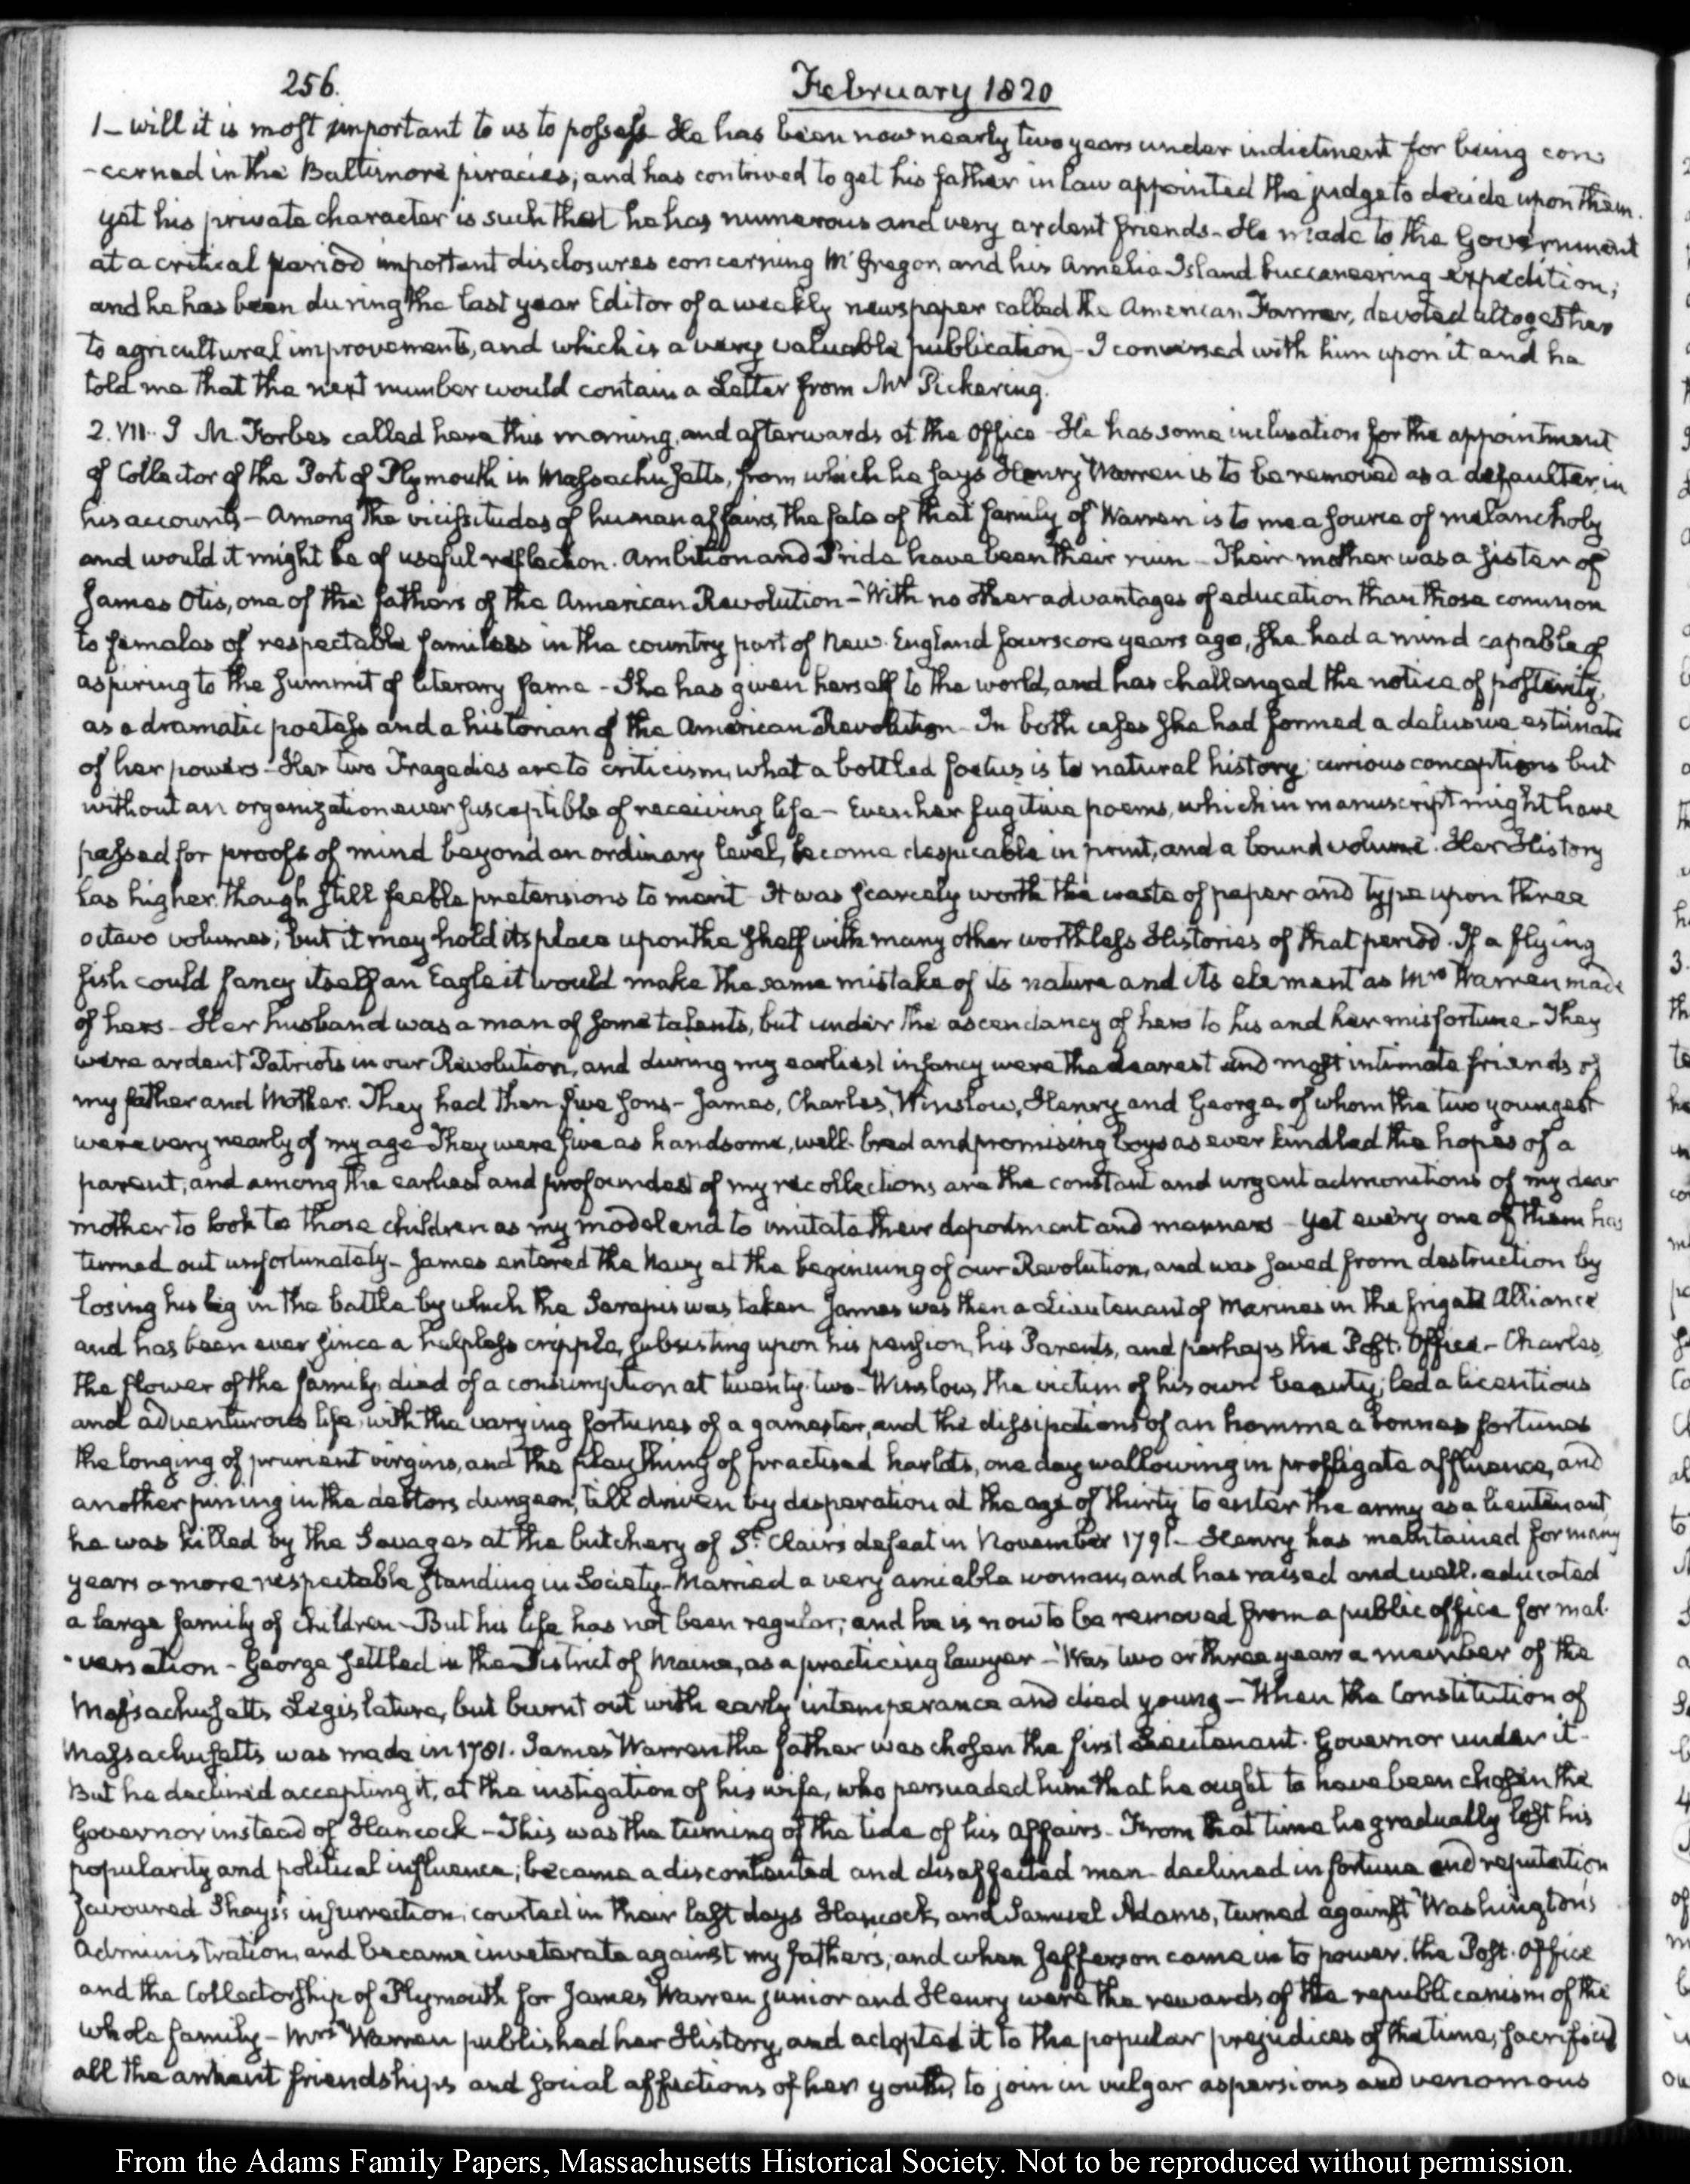 256.
February 1820
1 – will it is most important to us to possess – He has been now nearly two years under indictment for being con-
-cerned in the Baltimore piracies; and has contrived to get his father in law appointed the judge to decide upon them.
yet his private character is such that he has numerous and very ardent friends – He made to the Government
at a critical period important disclosures concerning McGregor, and his Amelia Island buccaneering expedition;
and he has been during the last year Editor of a weekly newspaper called the American Farmer, devoted altogether
to agricultural improvements, and which is a very valuable publication – I conversed with him upon it and he
told me that the next number would contain a Letter from Mr Pickering.
2. VII. J M. Forbes called here this morning, and afterwards at the Office – He has some inclination for the appointment
of Collector of the Port of Plymouth in Massachusetts, from which he says Henry Warren is to be removed as a defaulter in
his accounts – Among the vicissitudes of human affairs, the fate of that family of Warren is to me a source of melancholy
and would it might be of useful reflection. Ambition and Pride have been their ruin – Their mother was a sister of
James Otis, one of the fathers of the American Revolution – With no other advantages of education than those common
to females of respectable families in the country part of New England fourscore years ago, she had a mind capable of
aspiring to the summit of literary fame – She has given herself to the world, and has challenged the notice of posterity,
as a dramatic poetess and a historian of the American Revolution – In both cases she had formed a delusive estimate
of her powers – Her two Tragedies are to criticism, what a bottled foetus is to natural history; curious conceptions but
without an organization ever susceptible of receiving life – Even her fugitive poems, which in manuscript might have
passed for proofs of mind beyond an ordinary level, become despicable in print, and a bound volume. Her History
has higher though still feeble pretensions to merit – It was scarcely worth the waste of paper and type upon three
octavo volumes; but it may hold its place upon the shelf with many other worthless Histories of that period. If a flying
fish could fancy itself an Eagle it would make the same mistake of its nature and its element as Mrs Warren made
of hers – Her husband was a man of some talents, but under the ascendancy of hers to his and her misfortune – They
were ardent Patriots in our Revolution, and during my earliest infancy were the dearest and most intimate friends of
my father and Mother. They had then five sons – James, Charles, Winslow, Henry and George, of whom the two youngest
were very nearly of my age – They were five as handsome, well-bred and promising boys as ever kindled the hopes of a
parent; and among the earliest and profoundest of my recollections are the constant and urgent admonitions of my dear
mother to look to those children as my model and to imitate their deportment and manners – yet every one of them has
turned out unfortunately – James entered the Navy at the beginning of our Revolution, and was saved from destruction by
losing his leg in the battle by which the Serapis was taken – James was then a Lieutenant of Marines in the frigate Alliance
and has been ever since a helpless cripple, subsisting upon his pension, his Parents, and perhaps the Post-Office – Charles,
the flower of the family, died of a consumption at twenty-two – Winslow, the victim of his own beauty, led a licentious
and adventurous life, with the varying fortunes of a gamester, and the dissipations of an homme a bonnes fortunes
the longing of prurient virgins, and the plaything of practised harlots, one day wallowing in profligate affluence, and
another pining in the debtors dungeon, till driven by desperation at the age of thirty to enter the army as a lieutenant
he was killed by the Savages at the butchery of St. Clair's defeat in November 1791. – Henry has maintained for many
years a more respectable standing in Society – Married a very amiable woman, and has raised and well-educated
a large family of children – But his life has not been regular; and he is now to be removed from a public office for mal-
-versation – George settled in the District of Maine, as a practicing lawyer – Was two or three years a member of the
Massachusetts Legislature, but burnt out with early intemperance and died young – When the Constitution of
Massachusetts was made in 1781. James Warren the father was chosen the first Lieutenant-Governor under it –
But he declined accepting it, at the instigation of his wife, who persuaded him that he ought to have been chosen the
Governor instead of Hancock – This was the turning of the tide of his affairs – From that time he gradually lost his
popularity and political influence; became a discontented and disaffected man – declined in fortune and reputation
favoured Shays's insurrection, courted in their last days Hancock, and Samuel Adams, turned against Washington's
Administration, and became inveterate against my father's; and when Jefferson came in to power. the Post-Office
and the Collectorship of Plymouth for James Warren junior and Henry were the rewards of the republicanism of the
whole family – Mrs Warren published her History, and adapted it to the popular prejudices of the time; sacrificed
all the ancient friendships and social affections of her youth, to join in vulgar aspersions and venomous
From the Adams Family Papers, Massachusetts Historical Society. Not to be reproduced without permission.